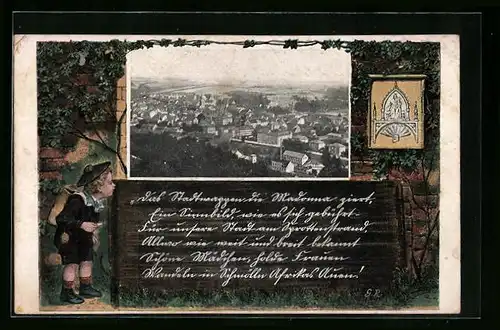 Das Stadtwappen die Madonna ziert,
Ein Sinnbild, wie es sich gebührt
Für unsere Stadt am Sprottenstrand,
Allwo wie weit und breit bekannt
Schöne Mädchen, holde Frauen
Wandeln in Schmölln Afrikas Auen!
G. R.